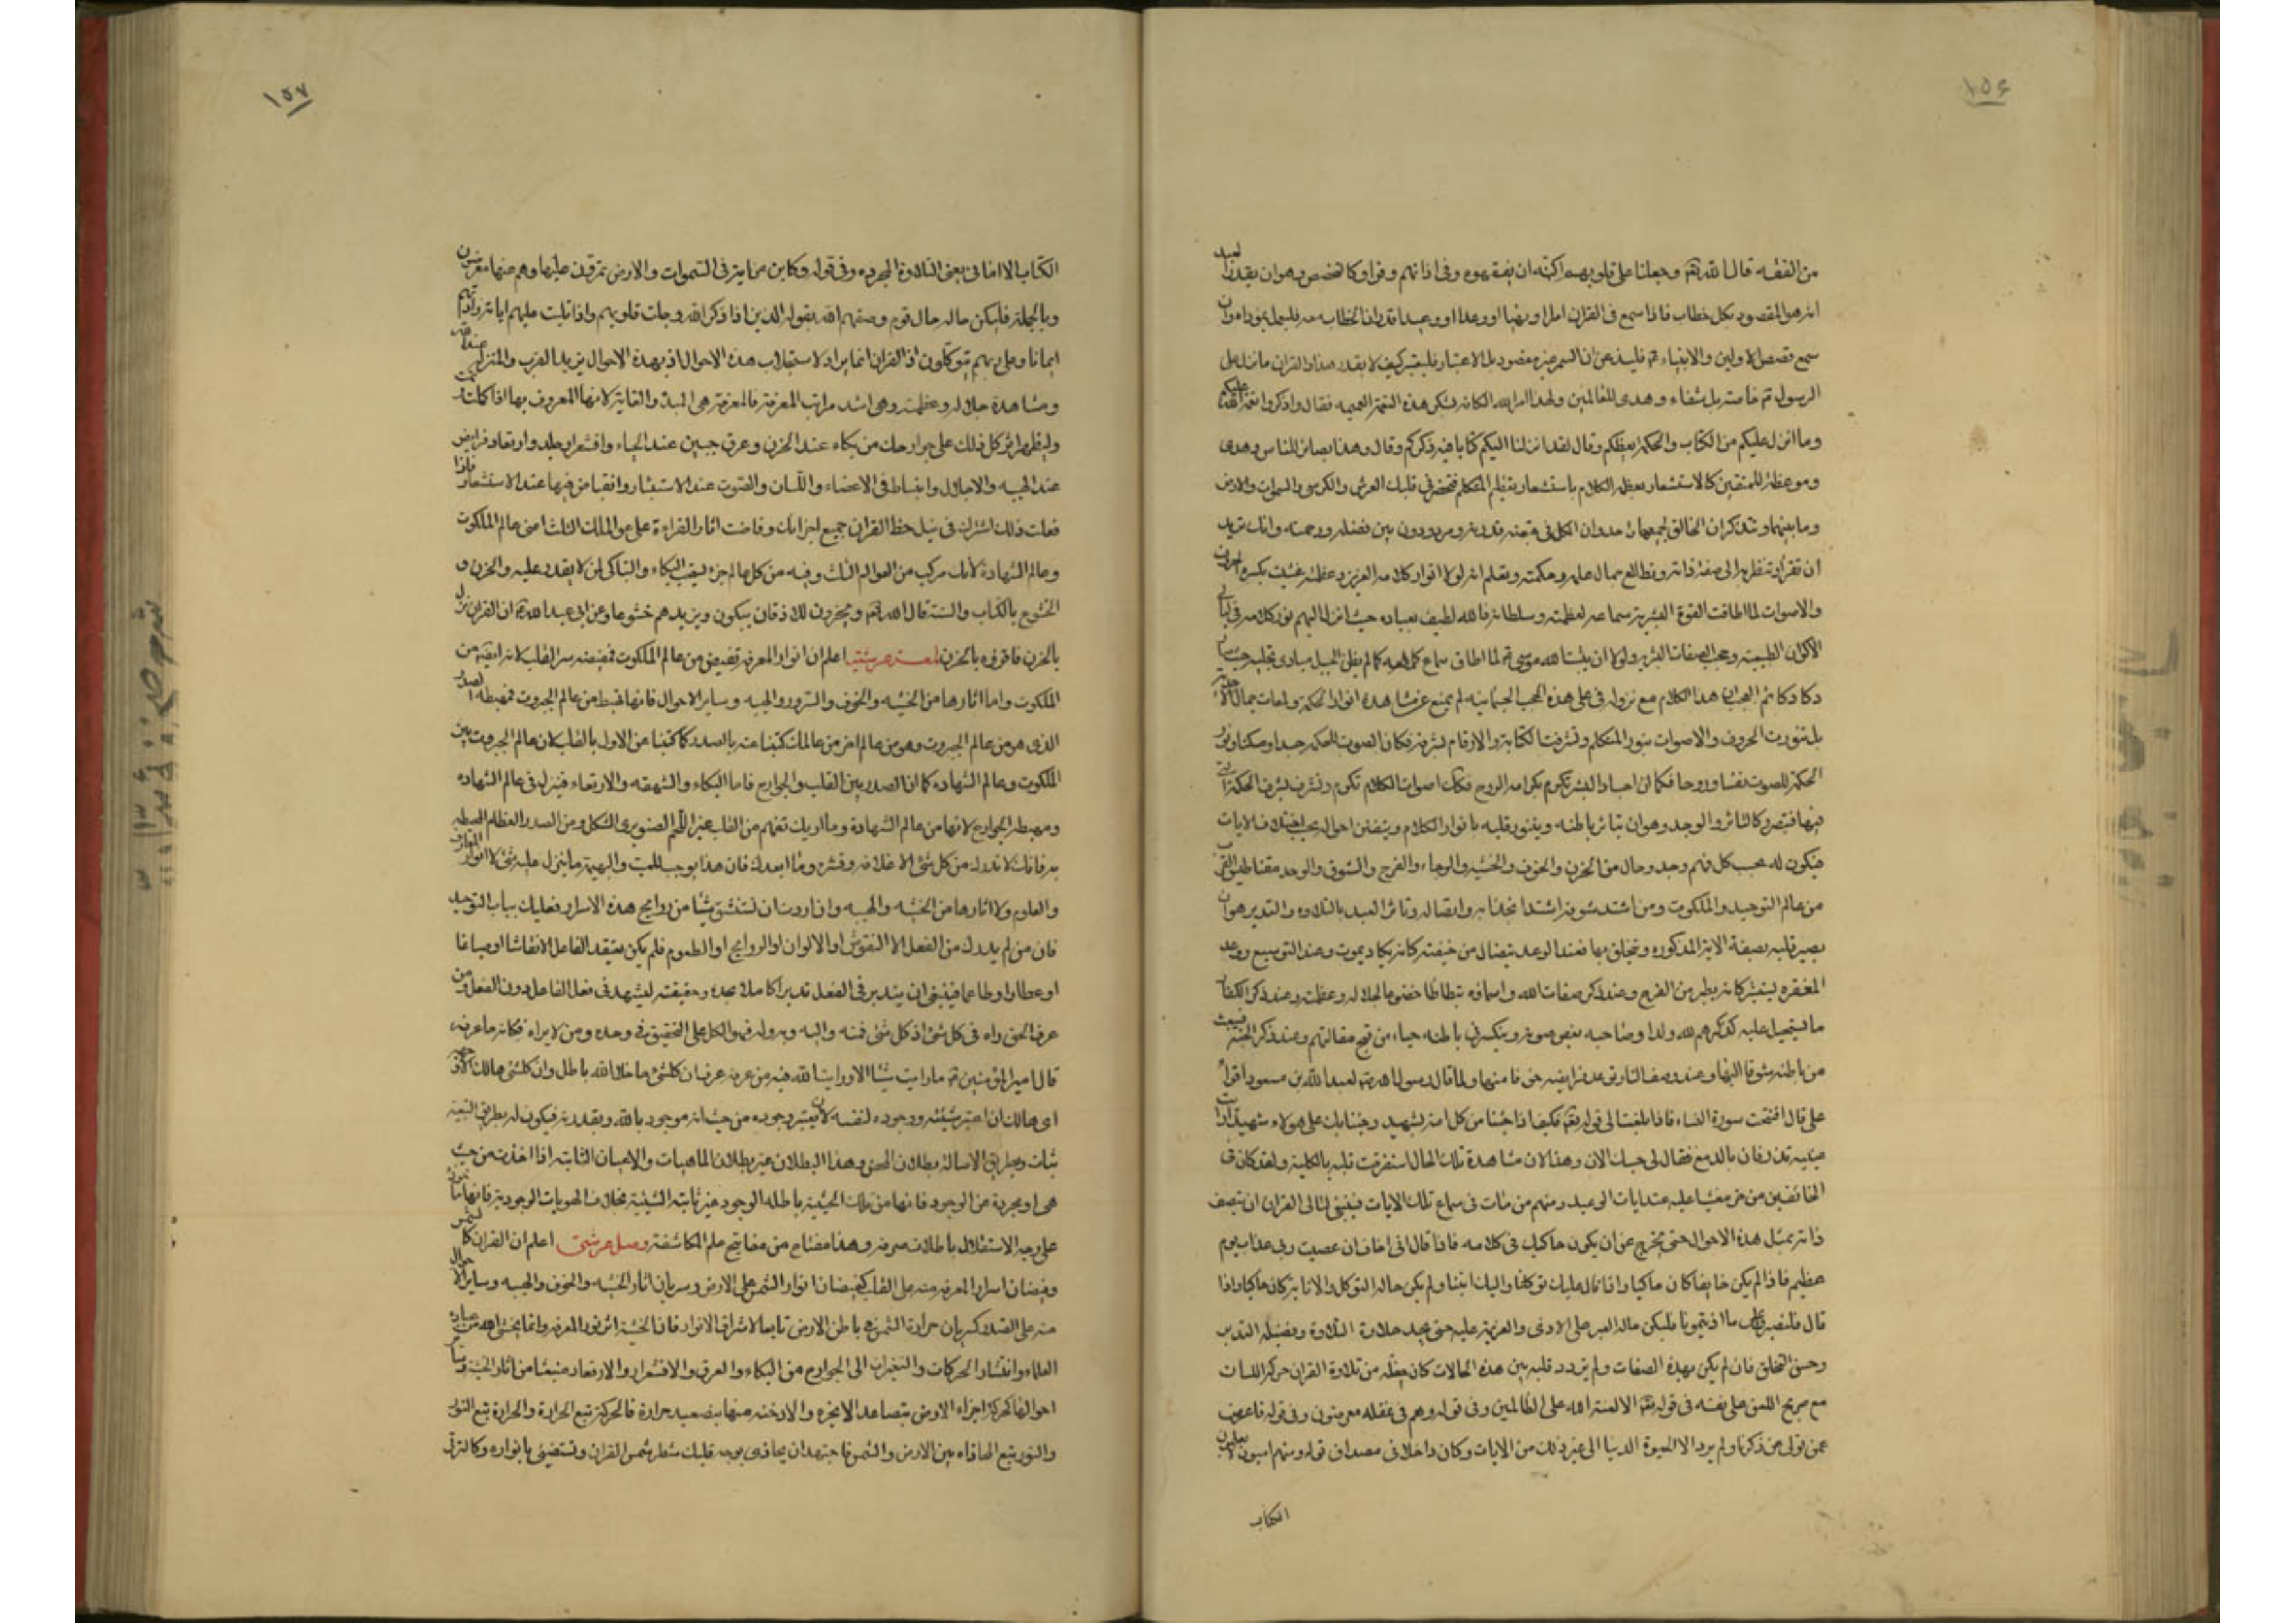 ١٥٦
من الفقه قال الله تعالى وجعلنا على قلوبهم اكنة ان يفقهوه وفى اذانهم وقرا وكالتخصص وهو ان يقدر العبد
انه هو المقصود بكل خطاب فاذا سمع فى القران امرا او نهيا او وعدا او وعيدا قدر ان الخطاب معه فليعمل بموداه وان
سمع قصص الاولين والانبياء فليذعن ان السمر غير مقصود بل الاعتبار فليعتبر كيف لا يقدر هذا والقران ما نزل على
الرسول خاصة بل شفاء وهدى للعالمين ولهذا امر الله الكافة بشكر هذه النعمة العميمه فقال واذكروا نعمة الله عليكم
وما انزل عليكم من الكتاب والحكمة يعظكم وقال لقد انزلنا اليكم كتابا فيه ذكركم وقال وهذا بصائر للناس وهدى
وموعظة للمتقين كالاستشعار بعظمة الكلام باستشعار بتعظيم المتكلم فتحضر فى قلبك العرش والكرسى والسموات والارض
وما بينهما وتتذكر ان الخالق لجميعها واحد وان الكل فى قبضة قدرته ومرددون بين فضله ورحمته وانك تريد
ان تقرأ وتنظر به الى صفة ذاته وتطالع جمال علمه وحكمته وتعلم انه لولا انوار كلامه العزيز وعظمته غشيت بكسوة الحروف
والاصوات لما اطاقت القوة البشرية سماعه لعظمته وسلطانه فالله لطيف بعباده حيث انزل اليهم نور كلامه فى لباس
الاكوان الطبيعية وحجب الصفات البشرية ولولا ان يثبت الله موسى لما اطاق سماع كلامه كما لم يطق الجبل مبادى تجليه حيث صار
دكا دكا ثم العجب ان هذا الكلام مع نزوله فى على هذه الحجب الجسمانية لم يمنع عن مشاهدة انوار الحكمة ولمعات جمال الاحديه
بل تنورت الحروف والاصوات بنور المتكلم وتشرفت الكتابة والارقام بشرفه فكان الصوت للحكمة جسدا ومسكنا ونور
الحكمة للصوت نفسا وروحا فكما ان اجساد البشر تكرم بكرامة الروح فكك اصوات الكلام تكرم وتشرف بشرف الحكمة التى
فيها فتبصر وكالتاثر والوجد وهو ان يتاثر باطنه ويتنور قلبه بانوار الكلام ويتفنن احواله بحسب اختلاف الايات
فيكون له بحسب كل فهم وجد وحال من الحزن والخوف والخشية والرجاء والفرح والشوق والوجد مقناطيس القرب
من عالم التوحيد والملكوت ومن اشتد شوقه اشتد انجذابه واتصاله وتاثر العبد بالتلاوة والتدبر هو ان
يصير قلبه بصفة الاية المذكورة ويتخلق بها فعند الوعيد يتضال من خيفته كانه يكاد يموت وعند التوسيع ووعد
المغفره يستبشر كانه يطير من الفرح وعند ذكر صفات الله واسمائه يتطاطا خضوعا لجلاله وعظمته وعند ذكر الكفار
ما يستحيل عليه كذكرهم لله ولدا وصاحبه يغض صوته وينكسر فى باطنه حياء من قبح مقالتهم وعند ذكر الجنة فينبعث
من باطنه شوقا اليها وعند وصف النار ترتعد فرايصه خوفا منها ولما قال رسول الله لعبد الله بن مسعود اقرأ
على قال افتتحت سورة النساء فاذا بلغت الى قوله تعالى فكيف اذا جئنا من كل امة بشهيد وجئنا بك على هولاء شهيدا رايت
عينيه تذرفان بالدمع فقال لى حسبك الان وهذا لان مشاهدة تلك الحال استغرقت قلبه بالكلية ولقد كان فى
الخائفين من خر مغشيا عليه عند ايات الوعيد ومنهم من مات فى سماع تلك الايات فينبغى لتالى القران ان يتصف
ذاته بمثل هذه الاحوال حتى يخرج عن ان يكون حاكيا فى كلامه فاذا قال انى اخاف ان عصيت ربى عذاب يوم
عظيم فاذا لم يكن خايفا كان حاكيا واذا قال عليك توكلنا واليك انبنا ولم يكن حاله التوكل والانابة كان حاكيا واذا
قال ولنصبرن على ما اذيتمونا فليكن حاله الصبر على الاذى والعزيمة عليه حتى يجد حلاوة التلاوة وفضيلة التدبر
وحسن التخلق فان لم يكن بهذه الصفات ولم يتردد قلبه بين هذه الحالات كان حظه من تلاوة القران حركة اللسان
مع صريح اللعن على نفسه فى قوله تعالى الا لعنة الله على الظالمين وفى قوله وهم فى غفلة معرضون وفى قوله فاعرض
عمن تولى عن ذكرنا ولم يرد الا الحيوة الدنيا الى غير ذلك من الايات وكان داخلا فى مصداق قوله ومنهم اميون لا يعلمون
الكتاب
١٥٧
الكتاب الا امانى يعنى التلاوة المجرده وفى قوله وكاين من اية فى السموات والارض يمرون عليها وهم عنها معرضون
وبالجملة فليكن حاله حال قوم وصفهم الله بقوله الذين اذا ذكر الله وجلت قلوبهم واذا تليت عليهم اياته زادتهم
ايمانا وعلى ربهم يتوكلون اذ القران انما يراد لاستجلاب هذه الاحوال اذ بهذه الاحوال يزيد القرب والمنزلة عند الله
ومشاهدة جلاله وعظمته وهى اشد مراتب المعرفة فالمعرفة هى المبدأ والغاية لانها المعروف بها اذا كملت تمت
وليظهر اثر كل ذلك على جوارحك من بكاء عند الحزن وعرق جبين عند الحياء واقشعرار جلد وارتعاد فرايص
عند الهيبه والاجلال وانبساط فى الاعضاء واللسان والصوت عند الاستبشار وانقباض فيها عند الاستشعار فاذا
فعلت ذلك اشتركت فى نيل حظ القران جميع اجزائك وفاضت اثار القراءة على عوالمك الثلث اعنى عالم الملكوت
وعالم الشهادة لانك مركب من العوالم الثلث وفيه من كل عالم جزء ليقب البكاء والتباكى لمن لا يقدر عليه والحزن و
الخشوع بالكتاب والسنة قال الله تعالى ويخرون للاذقان يبكون ويزيدهم خشوعا وعن ابى عبد الله ان القران نزل
بالحزن فاقرؤه بالحزن لمعة عرشية اعلم ان انوار المعرفة تفيض من عالم الملكوت فمفيضه سر القلب لانه ايضا من
الملكوت واما اثارها من الخشيه والخوف والسرور والهيبه وساير الاحوال فانها تهبط من عالم الجبروت فمهبطه الصدر
الذى هو من عالم الجبروت وهو من عالم اخر من عالمك كنينا عنه بالصدر كما كنينا عن الاول بالقلب لان عالم الجبروت بين
الملكوت وعالم الشهاده كما ان الصدر بين القلب والجوارح فاما البكاء والشهقه والارتعاد فينزل فى عالم الشهاده
ومهبطه الجوارح لانها من عالم الشهادة وما اريك تفهم من القلب غير اللحم الصنوبرى الشكل ومن الصدر العظام المحيطه
به فانك لا تدرك من كل شئ الا غلافه وقشره وما ابعدك فان هذا يوجب للميت والبهيمة ما يتنزل عليه شئ لا انوار المعارف
والعلوم ولا اثارها من الخشيه والهيبه وان اردت ان تستنشق شيئا من روايح هذه الاسرار فعليك بباب التوحيد
فان من لم يدرك من الفعل الا النقوش او الالوان او الروايح او الطعوم فلم يكن يعتقد الفاعل الا نقاشا او صباغا
او عطارا وطاعما فينبغى ان يتدبر فى الفعل تدبرا كاملا بحده وحقيقته ليشهد فى فعل الفاعل دون الفعل ومن
عرف الحق راه فى كل شئ اذ كل شئ فمنه واليه وبه وله فهو الكل على التحقيق فى وحده ومن لا يراه فكانه ما عرفه
قال امير المؤمنين ما رايت شيئا الا ورايت الله فيه من عرفه عرف ان كل شئ ما خلا الله باطل وان كل شئ هالك الا وجهه
اى هالك ان اعتبر شيئيته ووجوده لنفسه لا ان يعتبر وجوده من حيث انه موجود بالله وبقدرته فيكون له بطريق التبعيه
ثبات وبطريق الاصالة بطلان المحض وهذا البطلان غير بطلان الماهيات والاعيان الثابته اذا اخذت من حيث
هى او مجردة من الوجود فانها من تلك الحيثية باطله الوجود غير ثابته الشيئية بخلاف الهويات الوجودية فانها
على وجه الاستقلال باطلات صرفه وهذا مفتاح من مفاتيح علم المكاشفة وصل عرشى اعلم ان القران كالشمس
وفيضان اسرار المعرفه منه على القلب كفيضان انوار الشمس على الارض وسريان اثار الخشيه والخوف والهيبه وساير الاحوال
منه على الصدر كسريان حرارة الشمس فى باطن الارض تابعا لاشراق الانوار فان الخشية اثر نور المعرفه وانما يخشى الله من عباده
العلماء وانتشار الحركات والتغيرات الى الجوارح من البكاء والعرق والاقشعرار والارتعاد منبعثا من اثار الخشية
احوالها كحركة اجزاء الارض بتصاعد الابخره والادخنه منها بتصعيد حرارة فالحركة تتبع الحرارة والحرارة تتبع النور
والنور يتبع المحاذاه بين الارض والشمس فاجتهد ان يحاذى بوجه قلبك شطر شمس القران وتستضئ بانواره وكالترقى